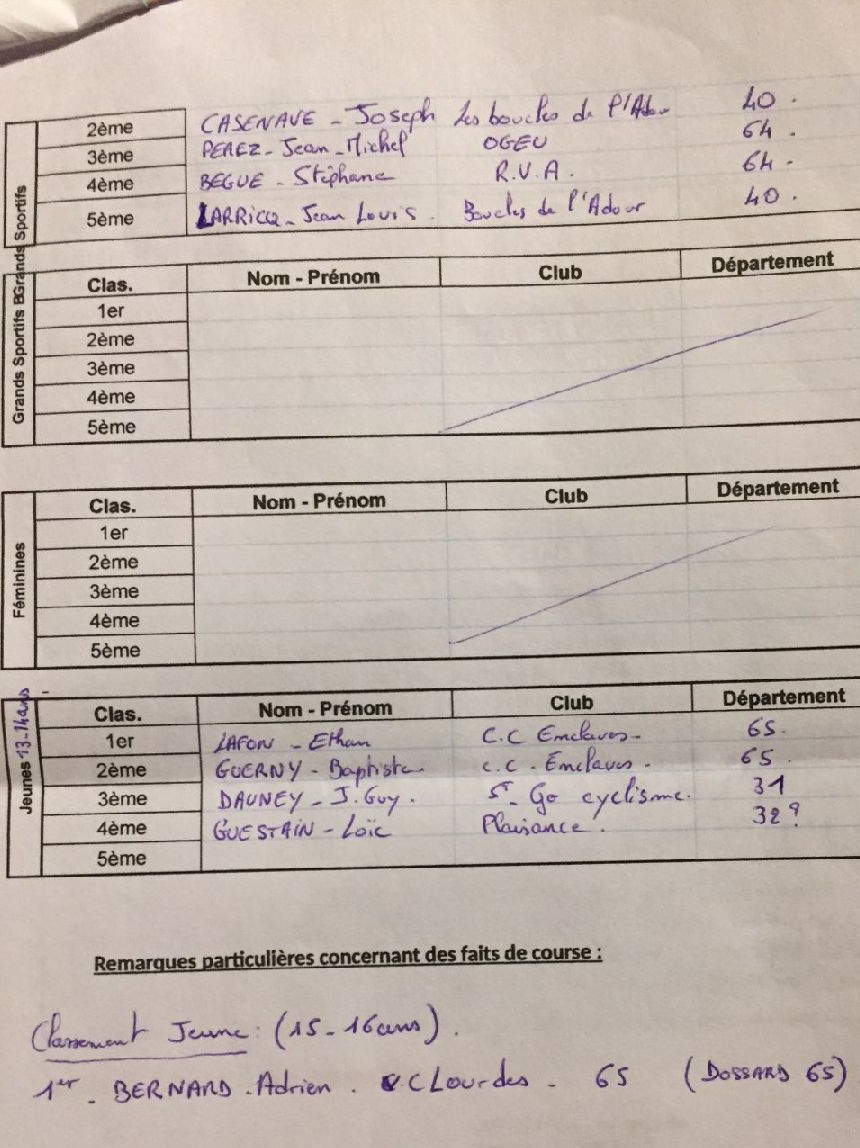 Grands Sportifs
2ème CASENAVE - Joseph Les boucles de l'Ado. 40.
3ème PEREZ - Jean-Michel OGEU 64.
4ème BEGUE - Stéphane R.V.A. 64.
5ème LARRICQ - Jean Louis. Boucles de l'Adour 40.
Grands Sportifs B
Clas. Nom - Prénom Club Département
1er
2ème
3ème
4ème
5ème
Féminines
Clas. Nom - Prénom Club Département
1er
2ème
3ème
4ème
5ème
Jeunes 13-14 ans
Clas. Nom - Prénom Club Département
1er LAFON - Ethan C.C Enclaves. 65.
2ème GUERNY - Baptiste c.c. Enclaves. 65.
3ème DAUNEY - J. Guy. St Go cyclisme. 31
4ème GUESTAIN - Loïc Plaisance. 32?
5ème
Remarques particulières concernant des faits de course :
Classement Jeune : (15-16 ans).
1er - BERNARD - Adrien. C Lourdes - 65 (DOSSARD 65)